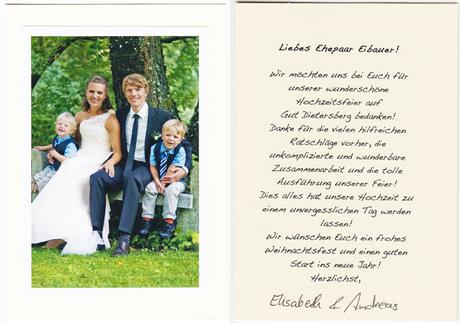 Liebes Ehepaar Eibauer!
Wir möchten uns bei Euch für
unserer wunderschöne
Hochzeitsfeier auf
Gut Dietersberg bedanken!
Danke für die vielen hilfreichen
Ratschläge vorher, die
unkomplizierte und wunderbare
Zusammenarbeit und die tolle
Ausführung unserer Feier!
Dies alles hat unsere Hochzeit zu
einem unvergesslichen Tag werden
lassen!
Wir wünschen Euch ein frohes
Weihnachtsfest und einen guten
Start ins neue Jahr!
Herzlichst,
Elisabeth & Andreas